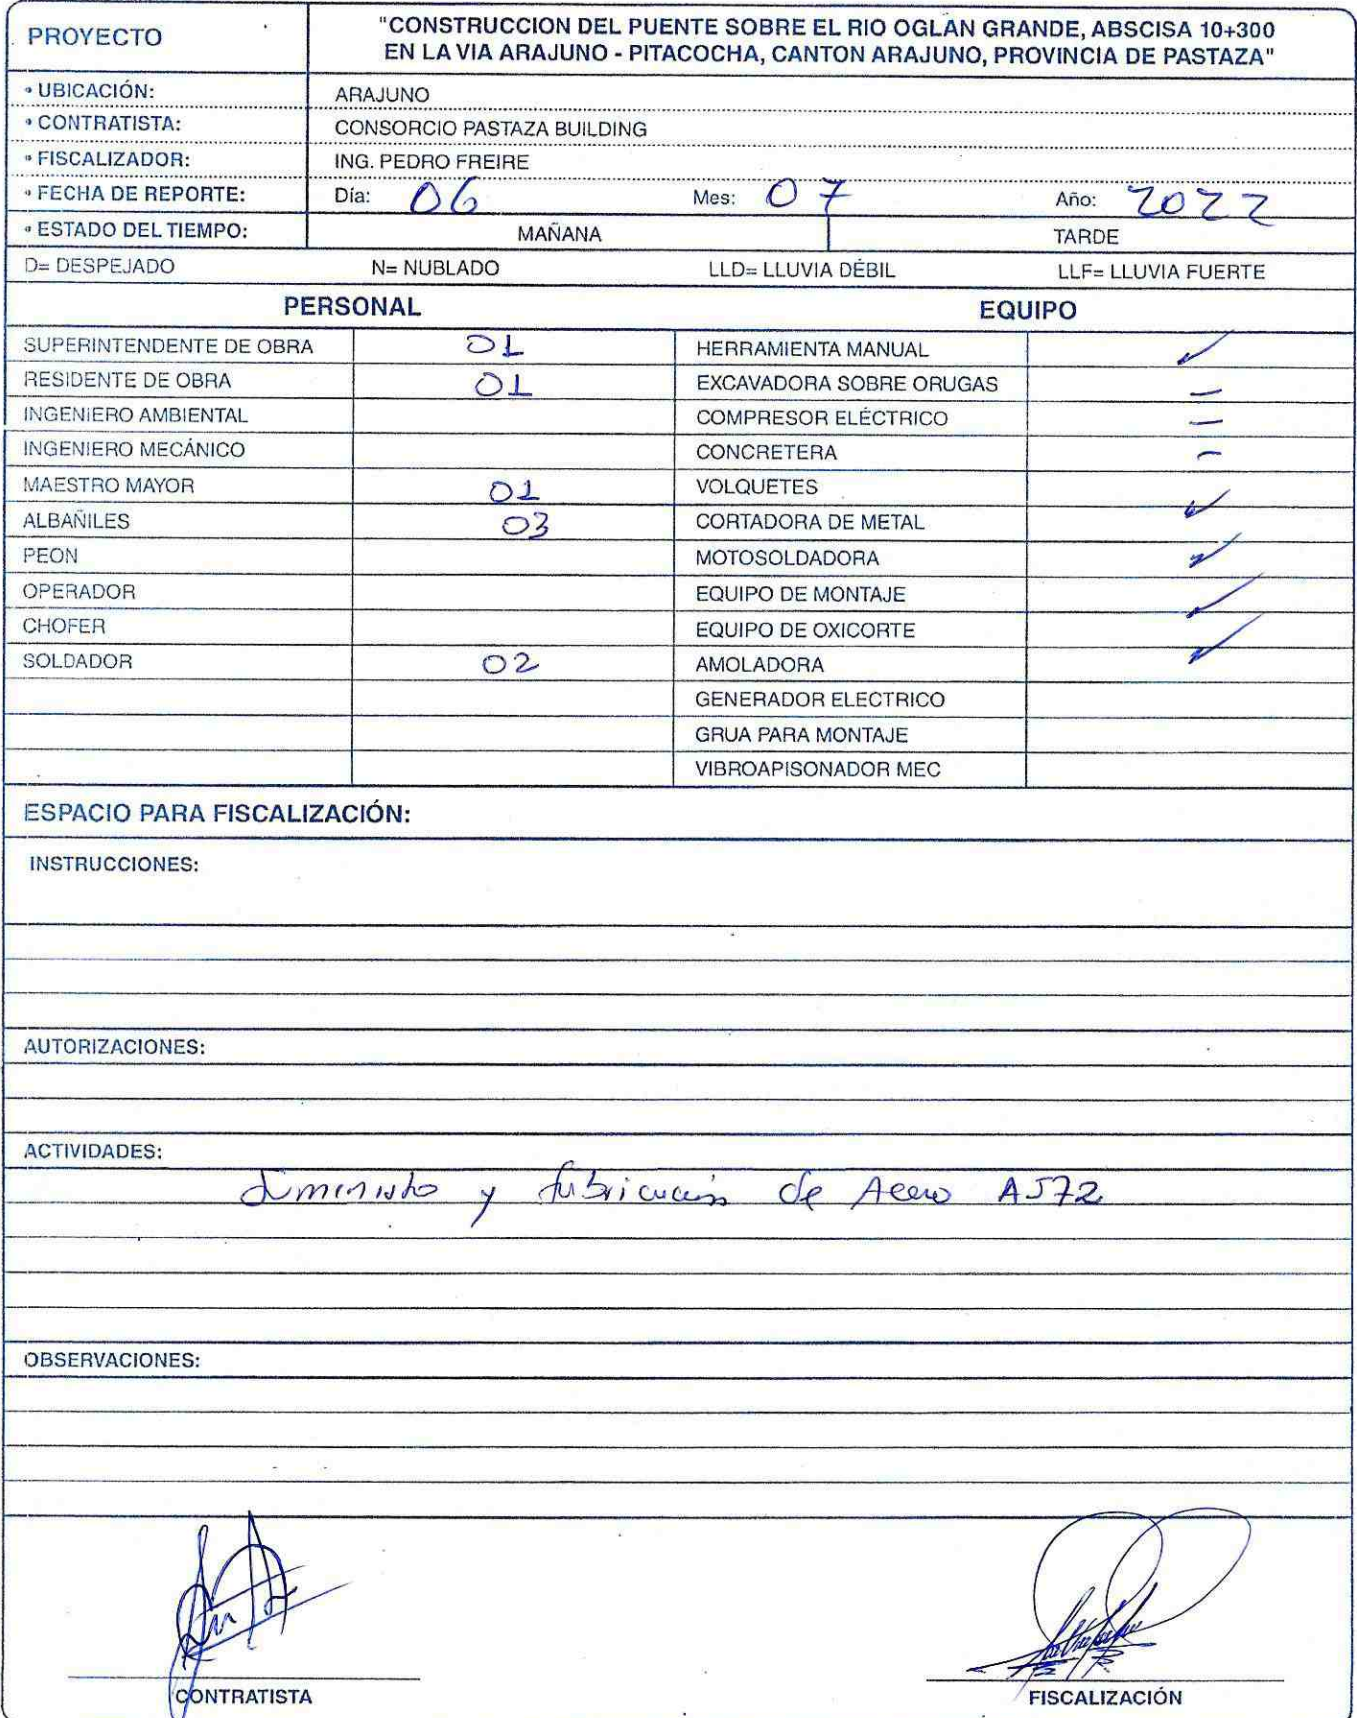 PROYECTO
"CONSTRUCCION DEL PUENTE SOBRE EL RIO OGLAN GRANDE, ABSCISA 10+300
EN LA VIA ARAJUNO - PITACOCHA, CANTON ARAJUNO, PROVINCIA DE PASTAZA"
• UBICACIÓN: ARAJUNO
• CONTRATISTA: CONSORCIO PASTAZA BUILDING
• FISCALIZADOR: ING. PEDRO FREIRE
• FECHA DE REPORTE: Día: 06 Mes: 07 Año: 2022
• ESTADO DEL TIEMPO: MAÑANA TARDE
D= DESPEJADO N= NUBLADO LLD= LLUVIA DÉBIL LLF= LLUVIA FUERTE
PERSONAL EQUIPO
SUPERINTENDENTE DE OBRA 01 HERRAMIENTA MANUAL ✓
RESIDENTE DE OBRA 01 EXCAVADORA SOBRE ORUGAS –
INGENIERO AMBIENTAL COMPRESOR ELÉCTRICO –
INGENIERO MECÁNICO CONCRETERA –
MAESTRO MAYOR 01 VOLQUETES
ALBAÑILES 03 CORTADORA DE METAL ✓
PEON MOTOSOLDADORA ✓
OPERADOR EQUIPO DE MONTAJE ✓
CHOFER EQUIPO DE OXICORTE
SOLDADOR 02 AMOLADORA ✓
GENERADOR ELECTRICO
GRUA PARA MONTAJE
VIBROAPISONADOR MEC
ESPACIO PARA FISCALIZACIÓN:
INSTRUCCIONES:
AUTORIZACIONES:
ACTIVIDADES:
Suministo y fabricación de Acero A572
OBSERVACIONES:
CONTRATISTA FISCALIZACIÓN